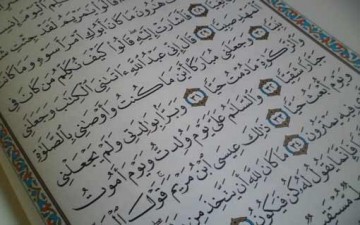 هَٰرُونَ مَا كَانَ أَبُوكِ ٱمْرَأَ سَوْءٍ وَمَا كَا
فَأَشَارَتْ إِلَيْهِ قَالُوا۟ كَيْفَ نُكَلِّمُ مَن كَانَ فِى
ٱلْمَهْدِ صَبِيًّا ٢٩ قَالَ إِنِّى عَبْدُ ٱللَّهِ ءَاتَىٰنِىَ ٱلْكِتَٰبَ وَجَعَلَنِى
نَبِيًّا ٣٠ وَجَعَلَنِى مُبَارَكًا أَيْنَ مَا كُنتُ وَأَوْصَٰنِى بِٱلصَّلَوٰةِ
وَٱلزَّكَوٰةِ مَا دُمْتُ حَيًّا ٣١ وَبَرًّۢا بِوَٰلِدَتِى وَلَمْ يَجْعَلْنِى
جَبَّارًا شَقِيًّا ٣٢ وَٱلسَّلَٰمُ عَلَىَّ يَوْمَ وُلِدتُّ وَيَوْمَ أَمُوتُ
وَيَوْمَ أُبْعَثُ حَيًّا ٣٣ ذَٰلِكَ عِيسَى ٱبْنُ مَرْيَمَ قَوْلَ
فِيهِ يَمْتَرُونَ ٣٤ مَا كَانَ لِلَّهِ أَن يَتَّخِذَ مِن
فَإِنَّمَا يَقُولُ لَهُۥ كُن فَيَكُونُ